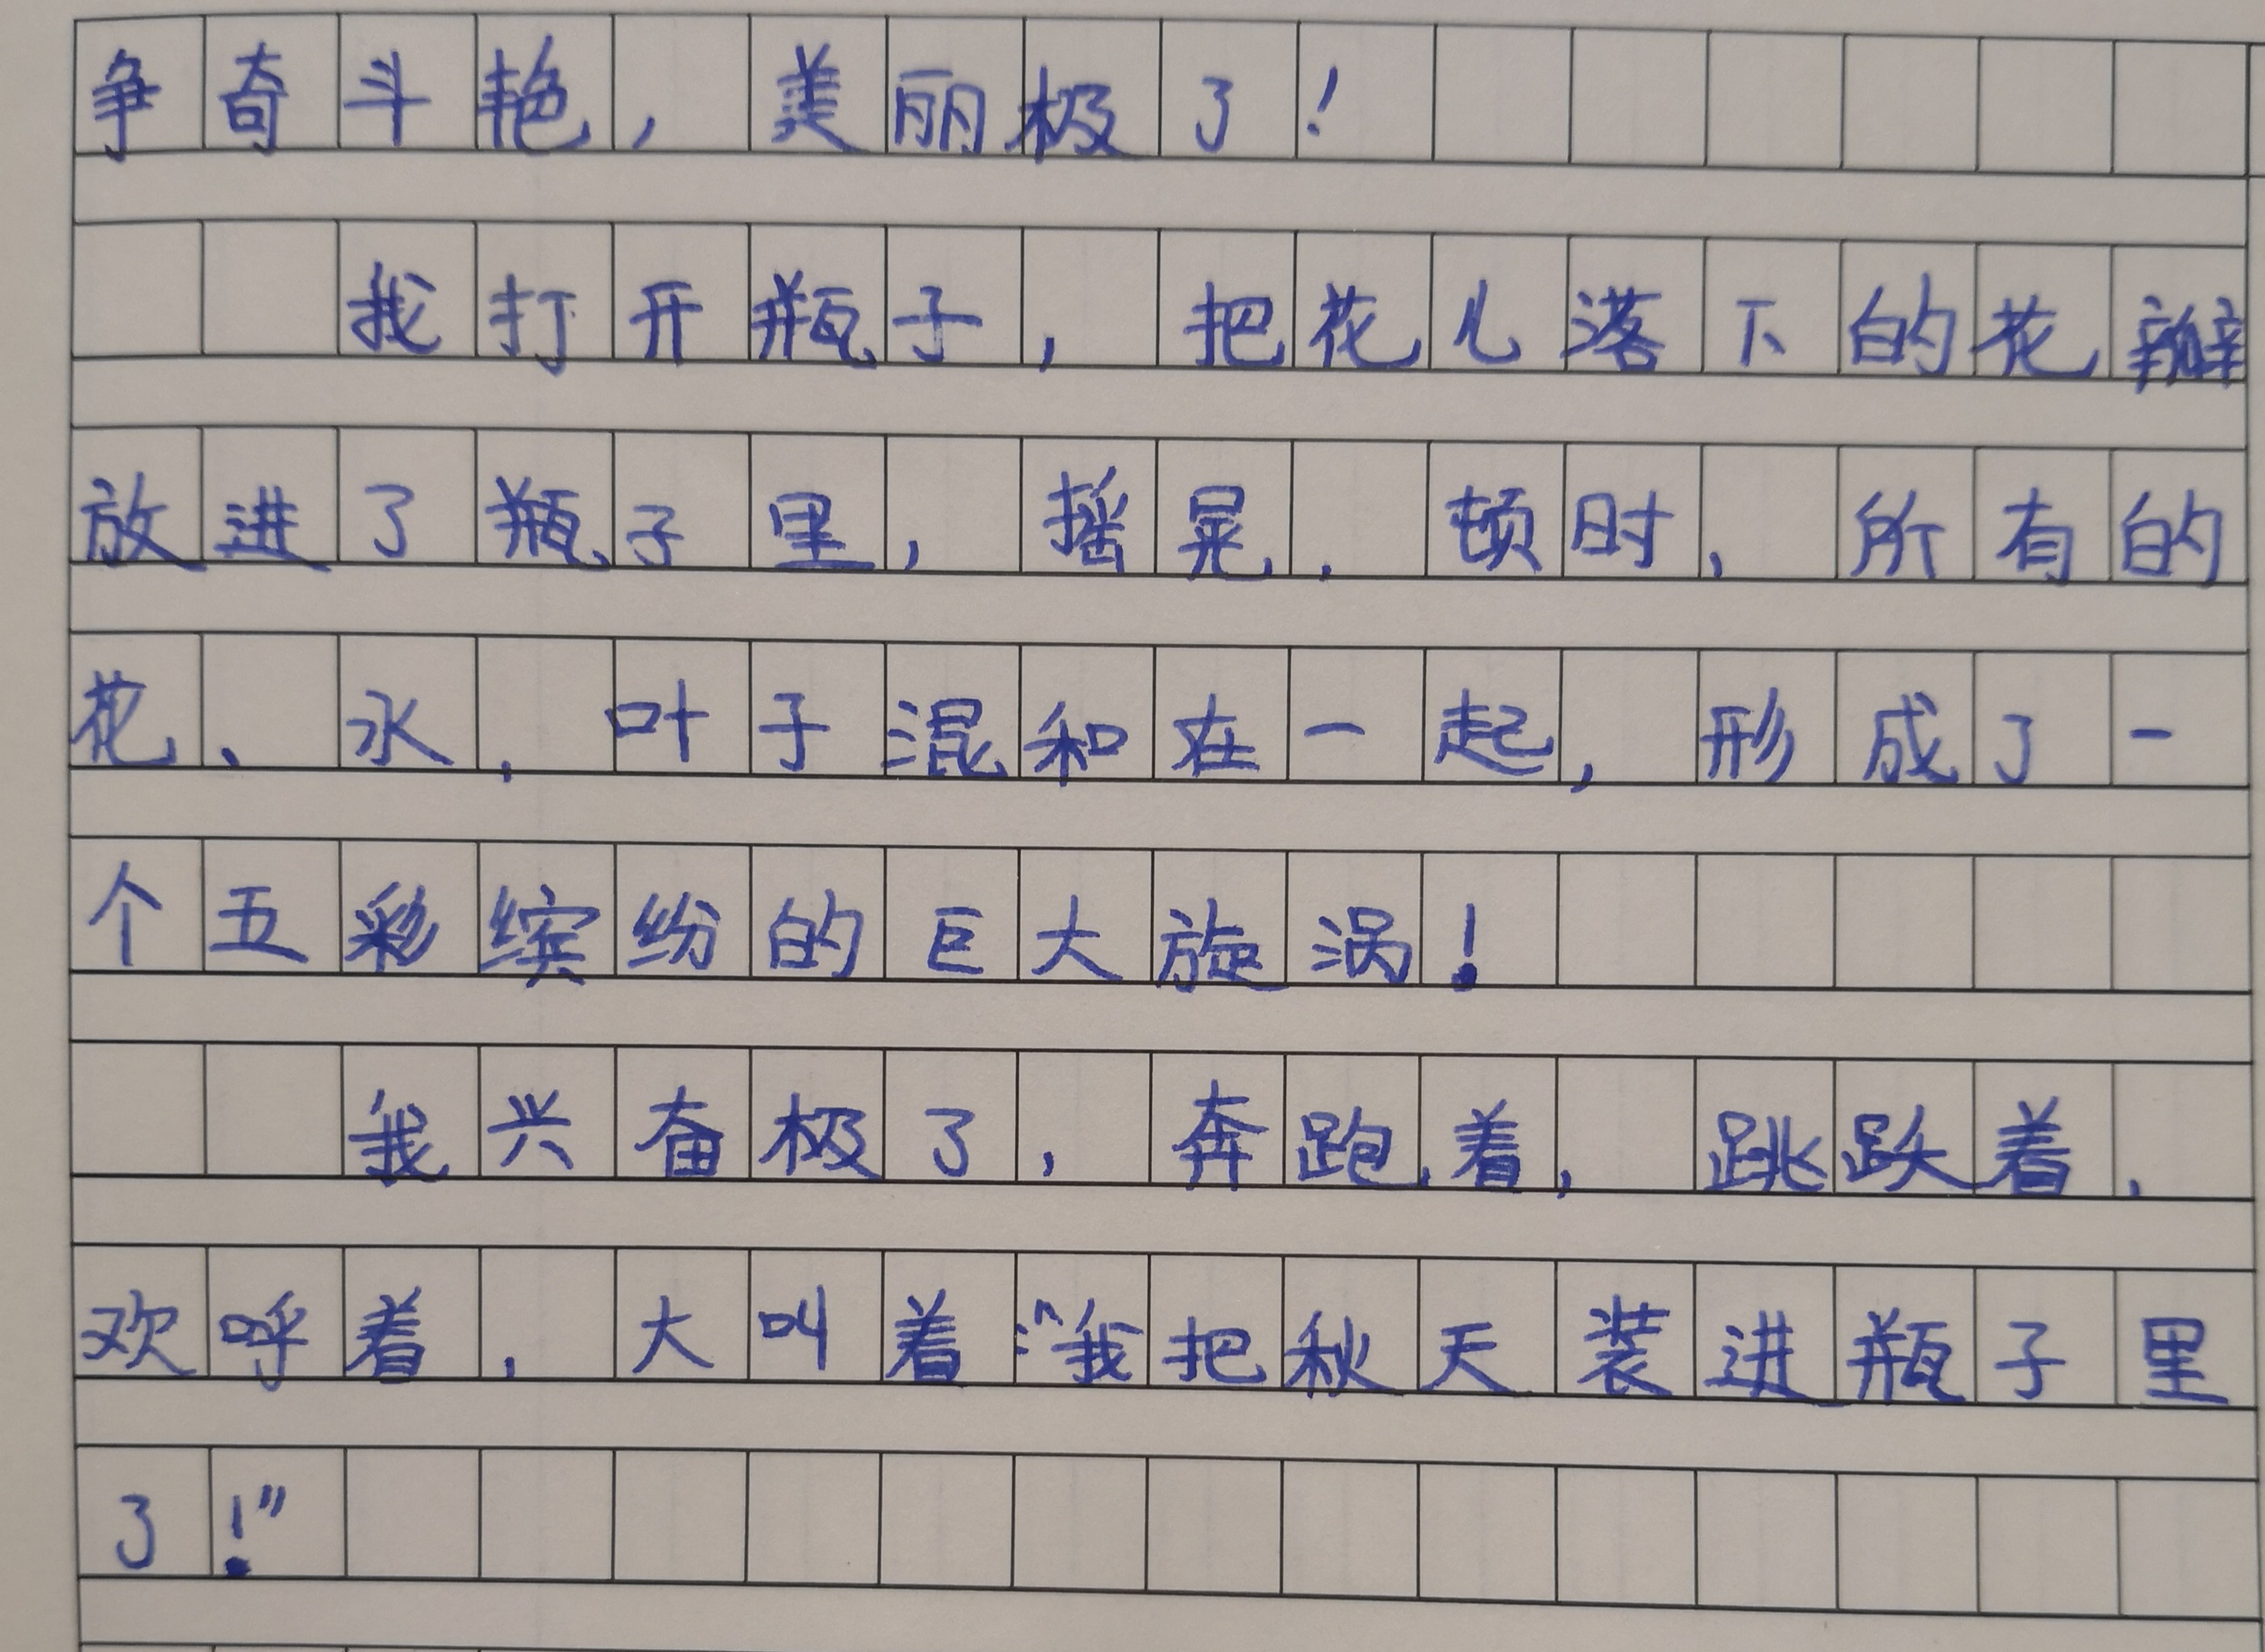 争奇斗艳，美丽极了！
我打开瓶子，把花儿落下的花瓣
放进了瓶子里，摇晃，顿时，所有的
花、水，叶子混和在一起，形成了一
个五彩缤纷的巨大旋涡！
我兴奋极了，奔跑着，跳跃着，
欢呼着，大叫着：“我把秋天装进瓶子里
了！”